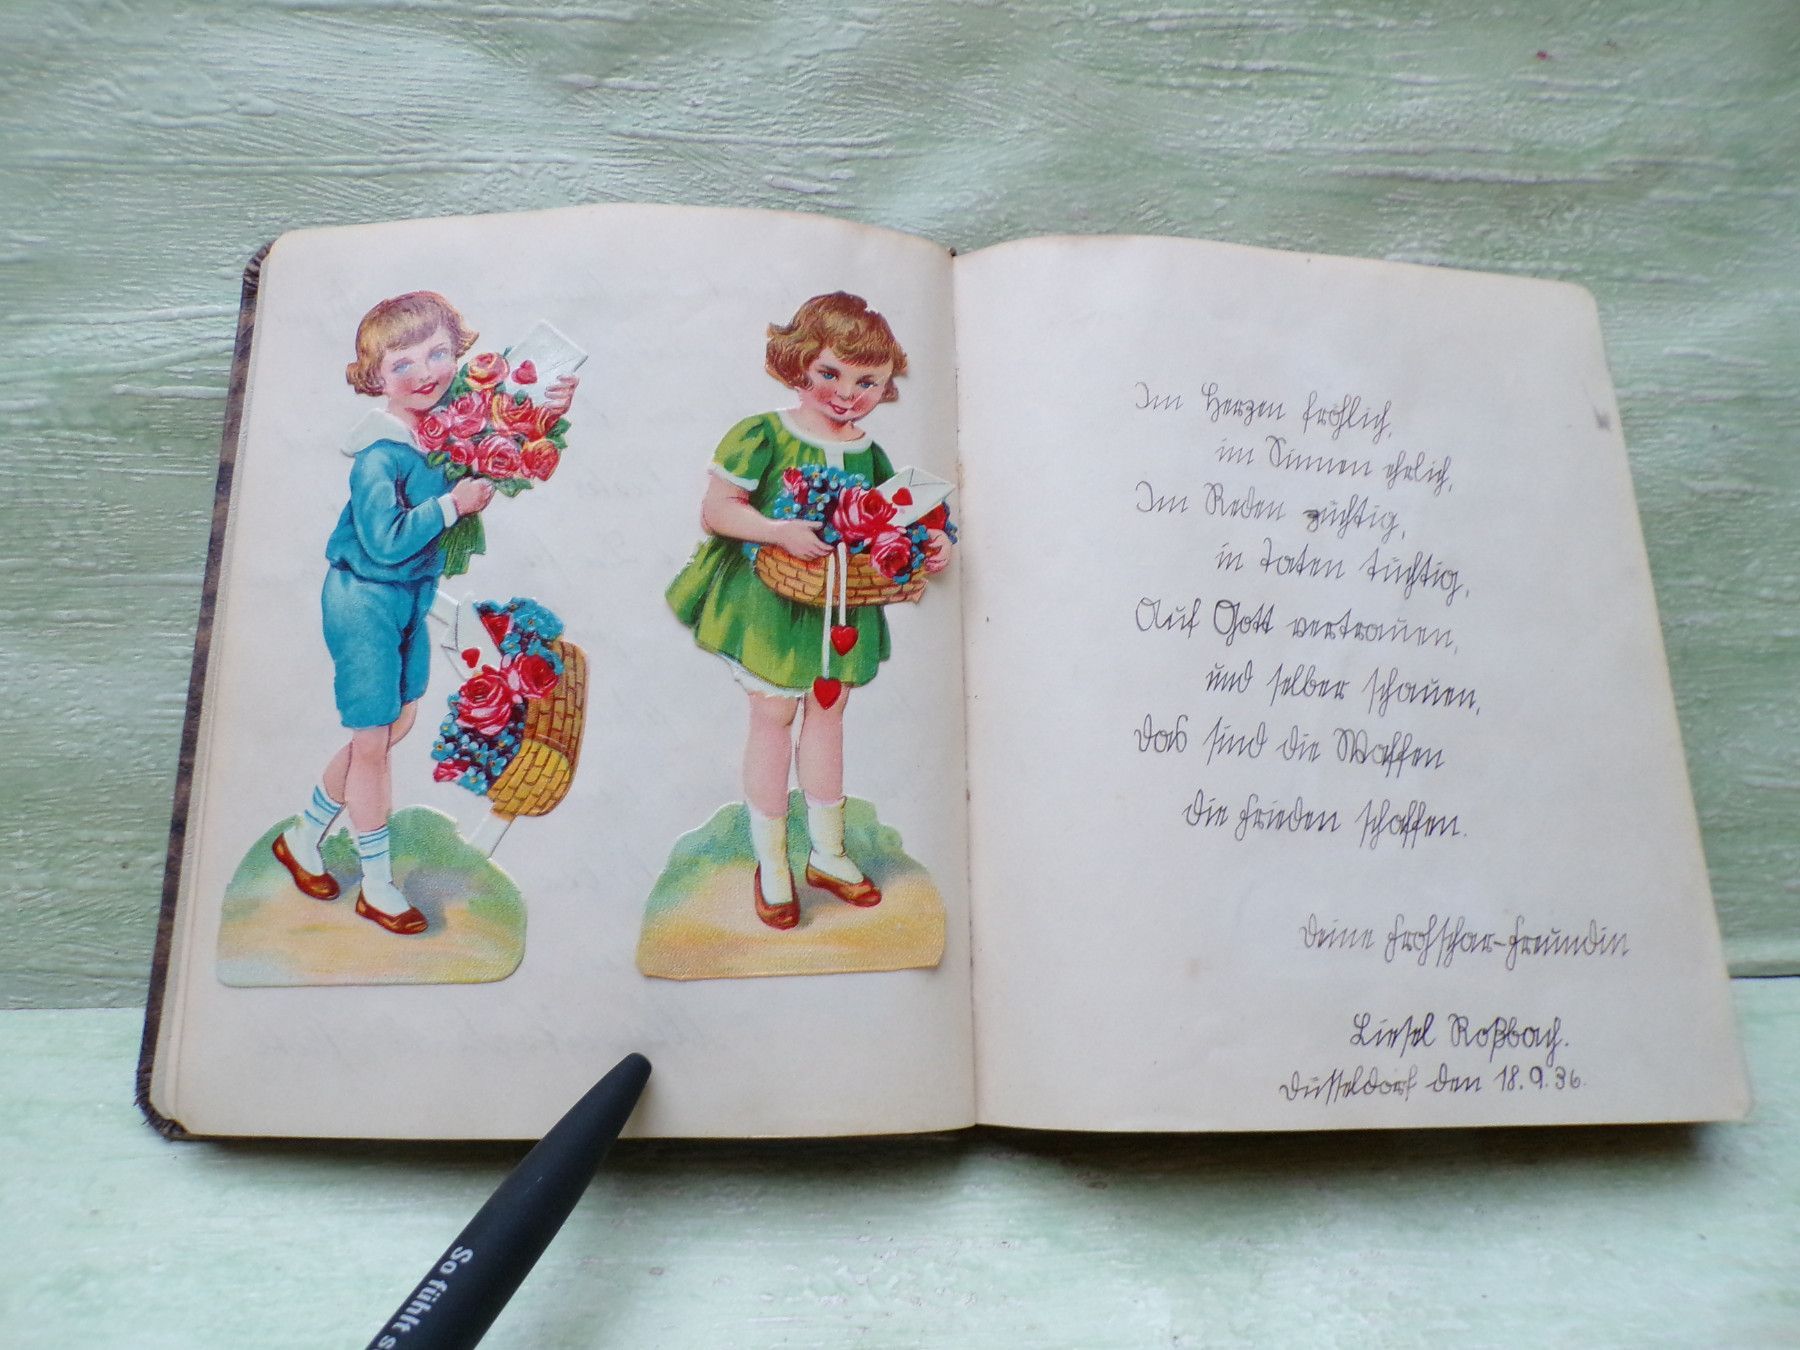 Im Herzen fröhlich,
im Sinnen ehrlich,
Im Reden züchtig,
in Taten tüchtig,
Auf Gott vertrauen,
und selber schauen,
das sind die Waffen
die Frieden schaffen.
Deine Frohschar-Freundin
Liesel Roßbach.
Düsseldorf den 18.9.36.
So fühlt s